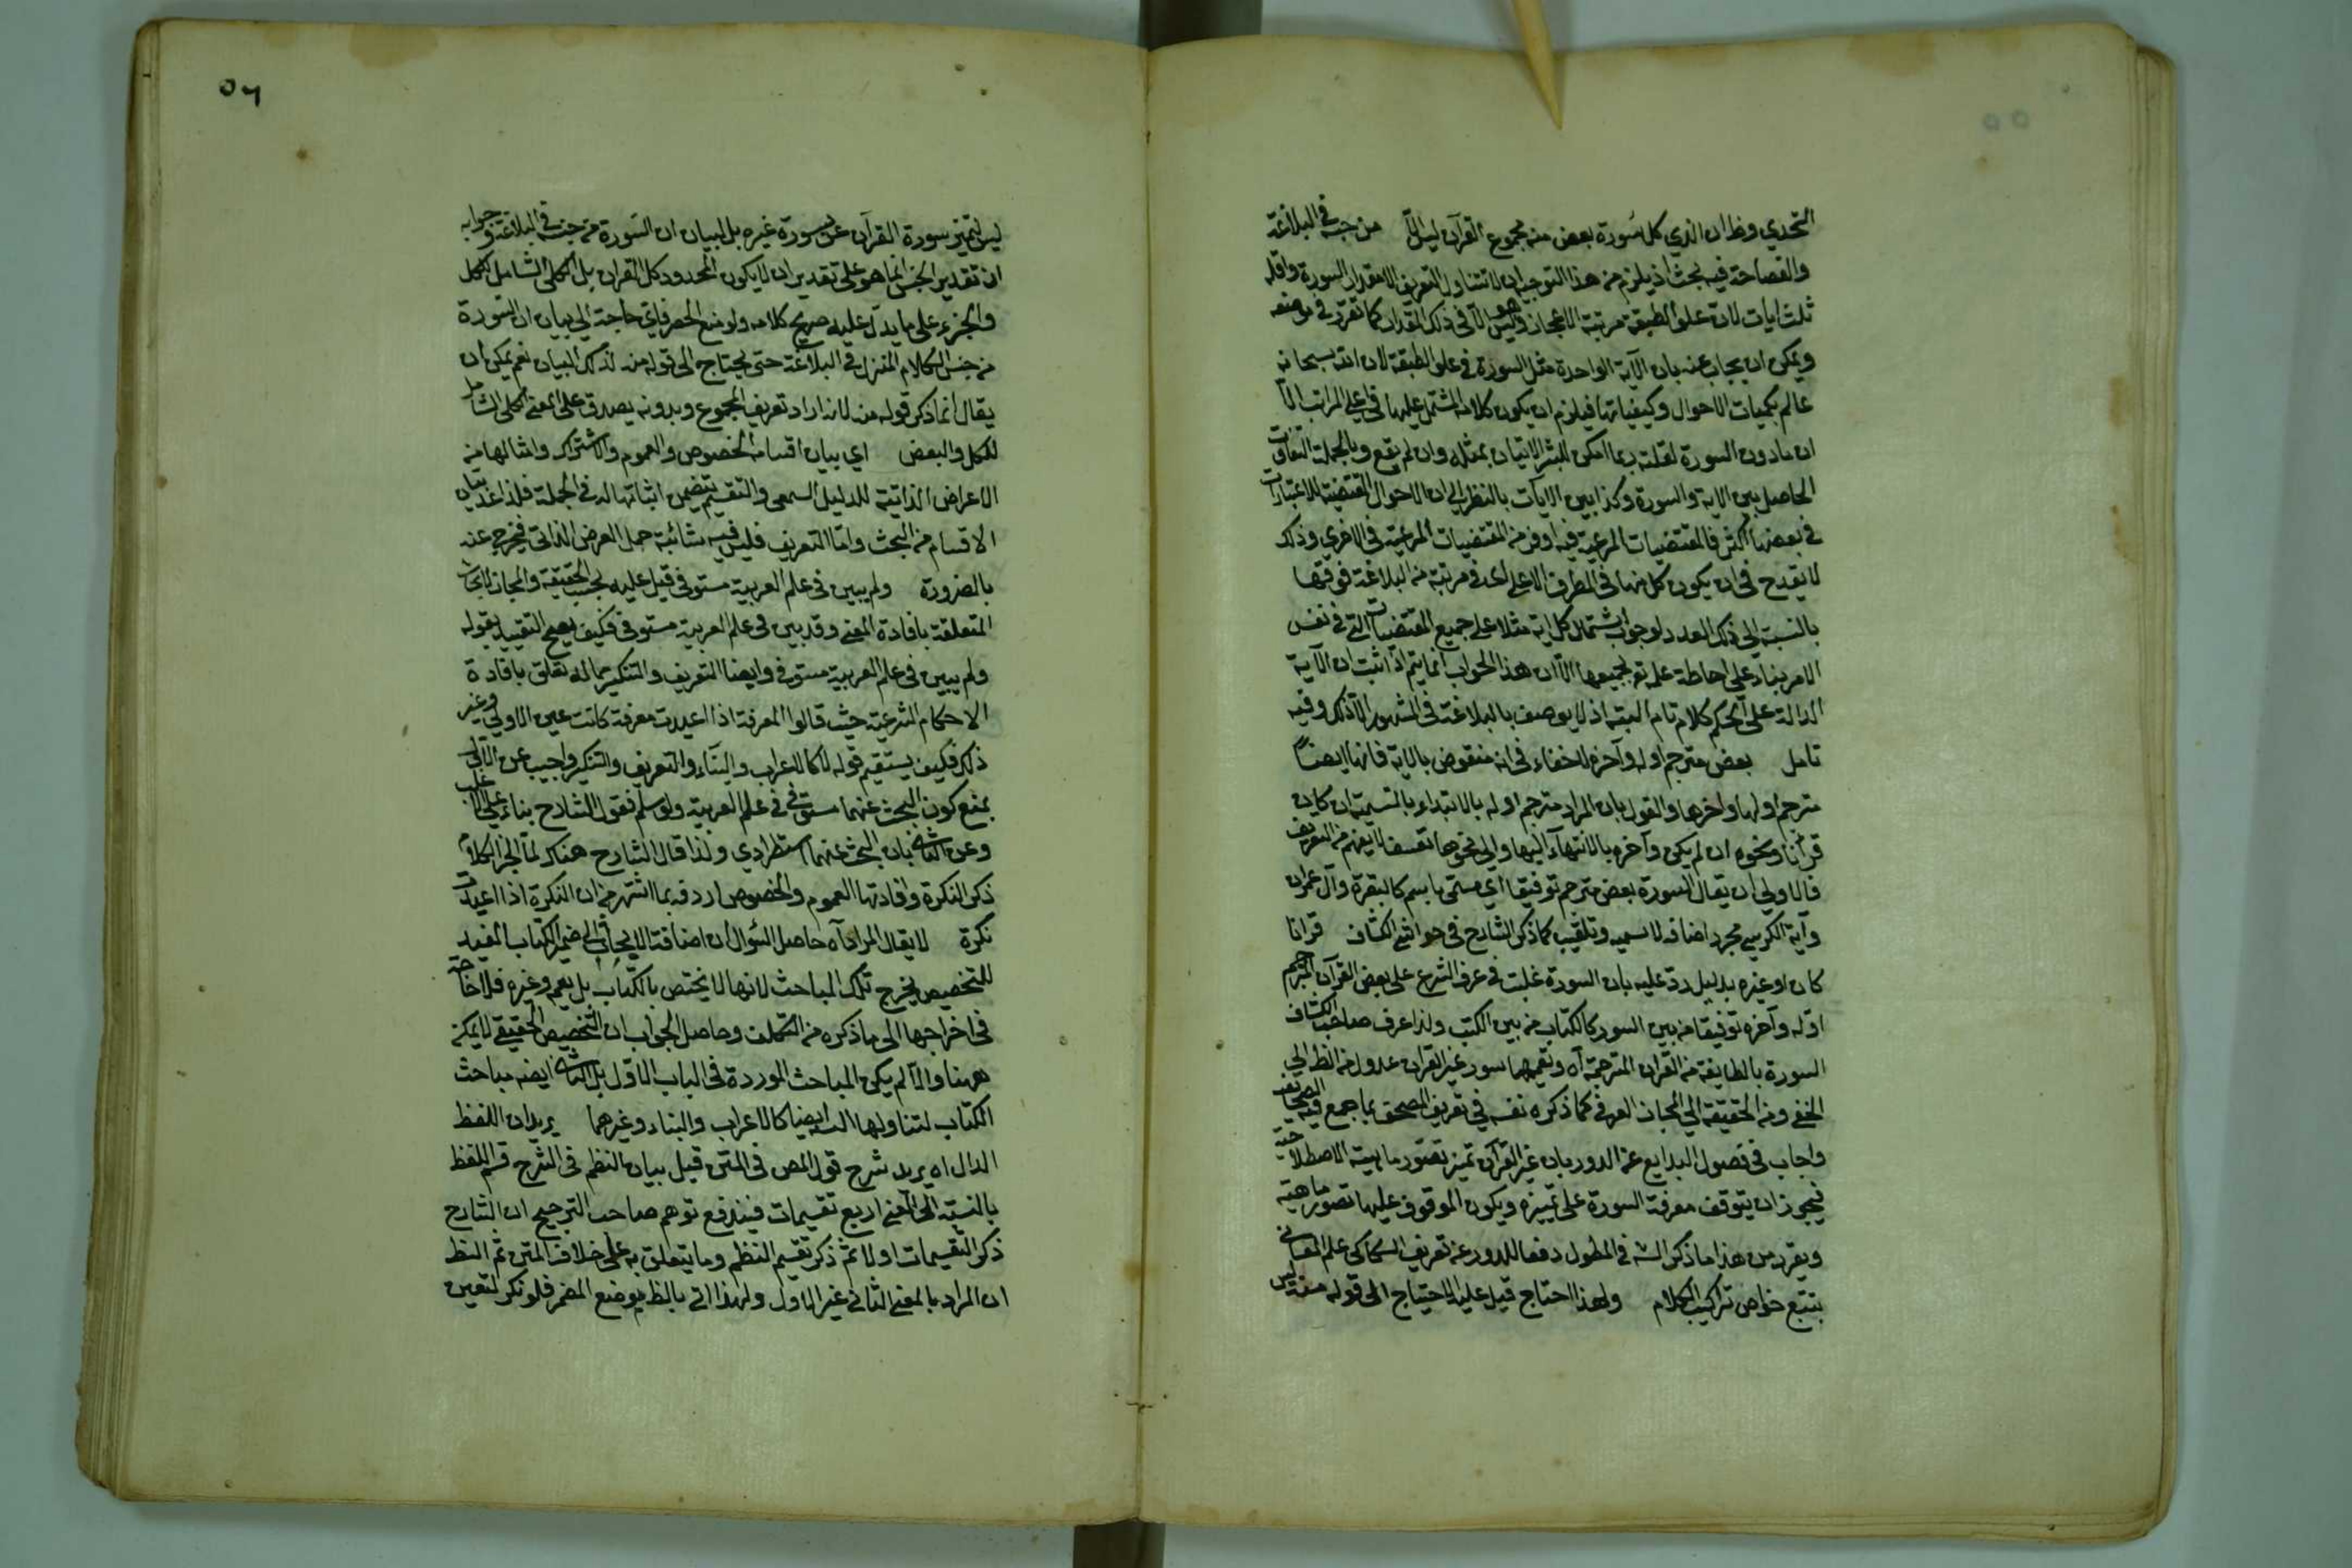 التحدي وظ ان الذي كل سورة بعض منه مجموع القرآن ليس الا من جنسه في البلاغة
والفصاحة فيه بحث اذ يلزم من هذا التوجيه ان لا تتناول التعريف الا مقدار السورة واقله
ثلث ايات لان علو الطبقة مرتبة الاعجاز وليس هو الا في ذلك المقدار كما تقرر في موضعه
ويمكن ان يجاب عنه بان الآية الواحدة مثل السورة في علو الطبقة لان الله سبحانه
عالم بكميات الاحوال وكيفياتها فيلزم ان يكون كلامه المشتمل عليها في اعلى المراتب الا
ان ما دون السورة لقلته ربما امكن للبشر الاتيان بمثله وان لم يقع وبالجملة التفاوت
الحاصل بين الاية والسورة وكذا بين الايات بالنظر الى ان الاحوال المقتضية للاعتبارات
في بعضها اكثر فالمقتضيات المرعية فيه اوفر من المقتضيات المرعية في الاخرى وذلك
لا يقدح في ان يكون كل منها في الطرف الاعلى اى في مرتبة من البلاغة فوقتها
بالنسبة الى ذلك العدد لوجوب اشتمال كل اية مثلا على جميع المقتضيات التي في نفس
الامر بناء على احاطة علمه تع بجميعها الا ان هذا الجواب انما يتم اذا ثبت ان الآية
الدالة على الحكم كلام تام البتة اذ لا يوصف بالبلاغة في المشهور الا ذلك وفيه
تامل بعض مترجم اوله وآخره لا خفاء في انه منقوض بالاية فانها ايضاً
مترجم اولها واخرها والقول بان المراد مترجم اوله بالابتداء بالتسمية ان كان
قرآنا ونحوه ان لم يكن وآخره بالانتهاء اليها والى نحوها تعسف لا يفهم من التعريف
فالاولى ان يقال السورة بعض مترجم توقيفا اي مسمى باسم كالبقرة وآل عمران
وآية الكرسي مجرد اضافة لا تسمية وتلقيب كما ذكر الشارح في حواشي الكشاف قرانا
كان او غيره بدليل رد عليه بان السورة غلبت في عرف الشرع على بعض القرآن المترجم
اوله وآخره توقيفا من بين السور كالكتاب من بين الكتب ولذا عرف صاحب الكشاف
السورة بالطايفة من القران المترجمة آه وتعميمها سور غير القران عدول من الظ الى
الخفي ومن الحقيقة الى المجاز العرفي كما ذكره نفسه في تعريف المصحف بما جمع فيه الصحائف
واجاب في فصول البدايع عن الدور بان غير القرآن تميز بتصور ماهيته الاصطلاحية
فيجوز ان يتوقف معرفة السورة على تميزه ويكون الموقوف عليها تصور ماهيته
ويقرب من هذا ما ذكر الشه في المطول دفعا للدور عن تعريف السكاكي علم المعاني
بتتبع خواص تراكيب الكلام ولهذا احتاج قيل عليه الاحتياج الى قوله منه ليس
٥٦
ليس لتمييز سورة القرآن عن سورة غيره بل لبيان ان السورة من جنسه في البلاغة وجوابه
ان تقدير الجنس انما هو على تقدير ان لا يكون المحدود كل القران بل الكلي الشامل للكل
والجزء على ما يدل عليه صريح كلامه ولو منع الحصر فاي حاجة الى بيان ان السورة
من جنس الكلام المنزل في البلاغة حتى يحتاج الى قوله منه لذلك البيان نعم يمكن ان
يقال انما ذكر قوله منه لانه اراد تعريف المجموع وبدونه يصدق على المعنى الكلي الشامل
للكل والبعض اي بيان اقسامه الخصوص والعموم والاشتراك وامثالها من
الاعراض الذاتية للدليل السمعي والتقسيم يتضمن اثباتها له في الجملة فلذا عد بيان
الاقسام من البحث واما التعريف فليس فيه شائبة حمل العرض الذاتي فيخرج عنه
بالضرورة ولم يبين في علم العربية مستوفى قيل عليه بحسب الحقيقة والمجاز
المتعلقة بافادة المعنى وقد بين في علم العربية مستوفى فكيف يصح التقييد بقوله
ولم يبين في علم العربية مستوفى وايضا التعريف والتنكير مما له تعلق بافادة
الاحكام الشرعية حيث قالوا المعرفة اذا اعيدت معرفة كانت عين الاولى وغير
ذلك فكيف يستقيم قوله لا كالاعراب والبناء والتعريف والتنكير واجيب عن الاول
بمنع كون البحث عنهما مستوفى في علم العربية ولو سلم فقول الشارح بناء على الاغلب
وعن الثاني بان البحث عنهما استطرادي ولذا قال الشارح هناك لما انجر الكلام
ذكر النكرة وافادتها العموم والخصوص اردفه بما اشتهر من ان النكرة اذا اعيدت
نكرة لا يقال المراد آه حاصل السؤال ان اضافة الابحاث الى ضمير الكتاب المفيد
للتخصيص يخرج تلك المباحث لانها لا يختص بالكتاب بل يعم وغيره فلا حاجة
في اخراجها الى ما ذكره من التكلف وحاصل الجواب ان التخصيص الحقيقي لا يمكن
ههنا والا لم يكن المباحث الموردة في الباب الاول بل الثاني ايضه مباحث
الكتاب لتناولها السنة ايضا كالاعراب والبناء وغيرهما يريد ان اللفظ
الدال اه يريد شرح قول المص في المتن قبيل بيان النظم في الشرح قسم اللفظ
بالنسبة الى المعنى اربع تقسيمات فيندفع توهم صاحب الترجيح ان الشارح
ذكر التقسيمات اولا ثم ذكر تقسيم النظم وما يتعلق به على خلاف المتن ثم الظ
ان المراد بالمعنى الثاني غير الاول ولهذا اتى بالظ موضع المضمر فلو نكر لتعين